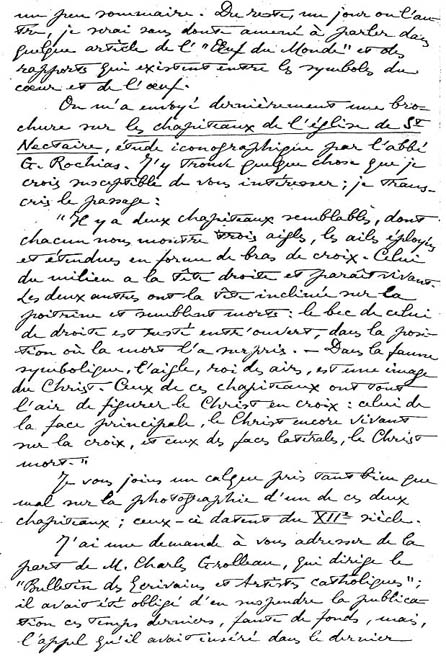 un peu sommaire. Du reste, un jour ou l'au-
tre, je serai sans doute amené à parler dans
quelque article de l'"Œuf du Monde" et des
rapports qui existent entre les symboles du
cœur et de l'œuf.
On m'a envoyé dernièrement une bro-
chure sur les chapiteaux de l'église de St
Nectaire, étude iconographique par l'abbé
G. Rochias. J'y trouve quelque chose que je
crois susceptible de vous intéresser ; je trans-
cris le passage :
"Il y a deux chapiteaux semblables, dont
chacun nous montre trois aigles, les ailes éployées
et étendues en forme de bras de croix. Celui
du milieu a la tête droite et paraît vivant.
Les deux autres ont la tête inclinée sur la
poitrine et semblent morts : le bec de celui
de droite est resté entr'ouvert, dans la posi-
tion où la mort l'a surpris. — Dans la faune
symbolique, l'aigle, roi des airs, est une image
du Christ. Ceux de ces chapiteaux ont tout
l'air de figurer le Christ en croix : celui de
la face principale, le Christ encore vivant
sur la croix, et ceux des faces latérales, le Christ
mort."
Je vous joins un calque pris tant bien que
mal sur la photographie d'un de ces deux
chapiteaux ; ceux-ci datent du XIIe siècle.
J'ai une demande à vous adresser de la
part de M. Charles Grolleau, qui dirige le
"Bulletin des Ecrivains et Artistes catholiques" ;
il avait été obligé d'en suspendre la publica-
tion ces temps derniers, faute de fonds, mais,
l'appel qu'il avait inséré dans le dernier